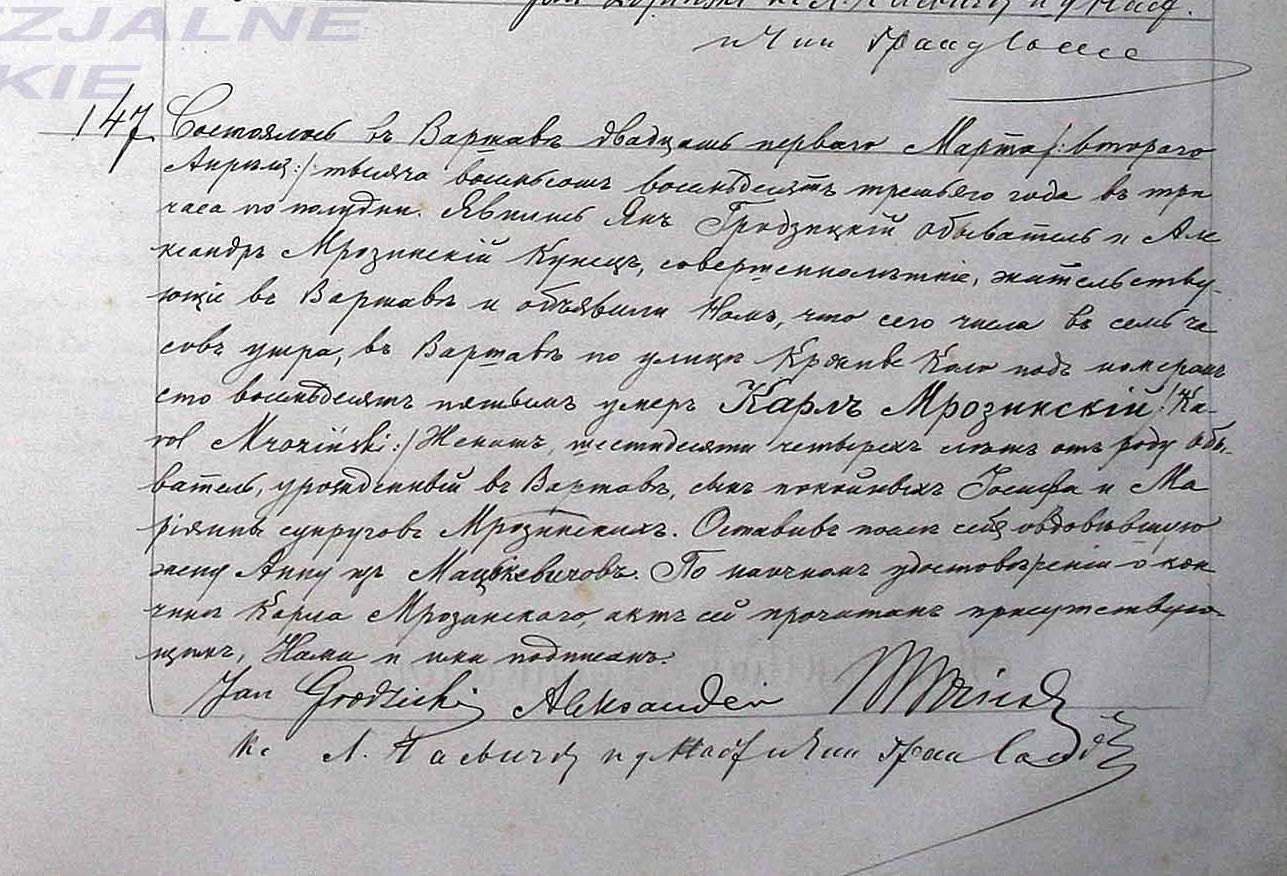 ZJALNE
KIE
и Чин Гражд Сост
147. Состоялось въ Варшавѣ двадцать перваго Марта /: втораго
Апрѣля :/ тысяча восемьсотъ восемьдесятъ третьяго года въ три
часа по полудни. Явились Янъ Гродзицкій обыватель и Але
ксандръ Мрозинскій Купецъ, совершеннолѣтніе, жительству-
ющіе въ Варшавѣ и объявили Намъ, что сего числа въ семь ча
совъ утра, въ Варшавѣ по улицѣ Кривѣ Коло подъ номеромъ
сто восемьдесятъ пятымъ умеръ Карлъ Мрозинскій /: Ka-
rol Mroziński :/ Женатъ, шестидесяти четырехъ лѣтъ отъ роду Обы-
ватель, урожденный въ Варшавѣ, сынъ покойныхъ Іосифа и Ма
ріянны супруговъ Мрозинскихъ. Оставивъ послѣ себя овдовѣвшую
жену Анну изъ Мацькевичовъ. По наочномъ удостовѣреніи о кон
чинѣ Карла Мрозинскаго, актъ сей прочитанъ присутствую-
щимъ, Нами и ими подписанъ.
Jan Grodzicki Aleksander
Кс Л. и Чин Гражд Сост